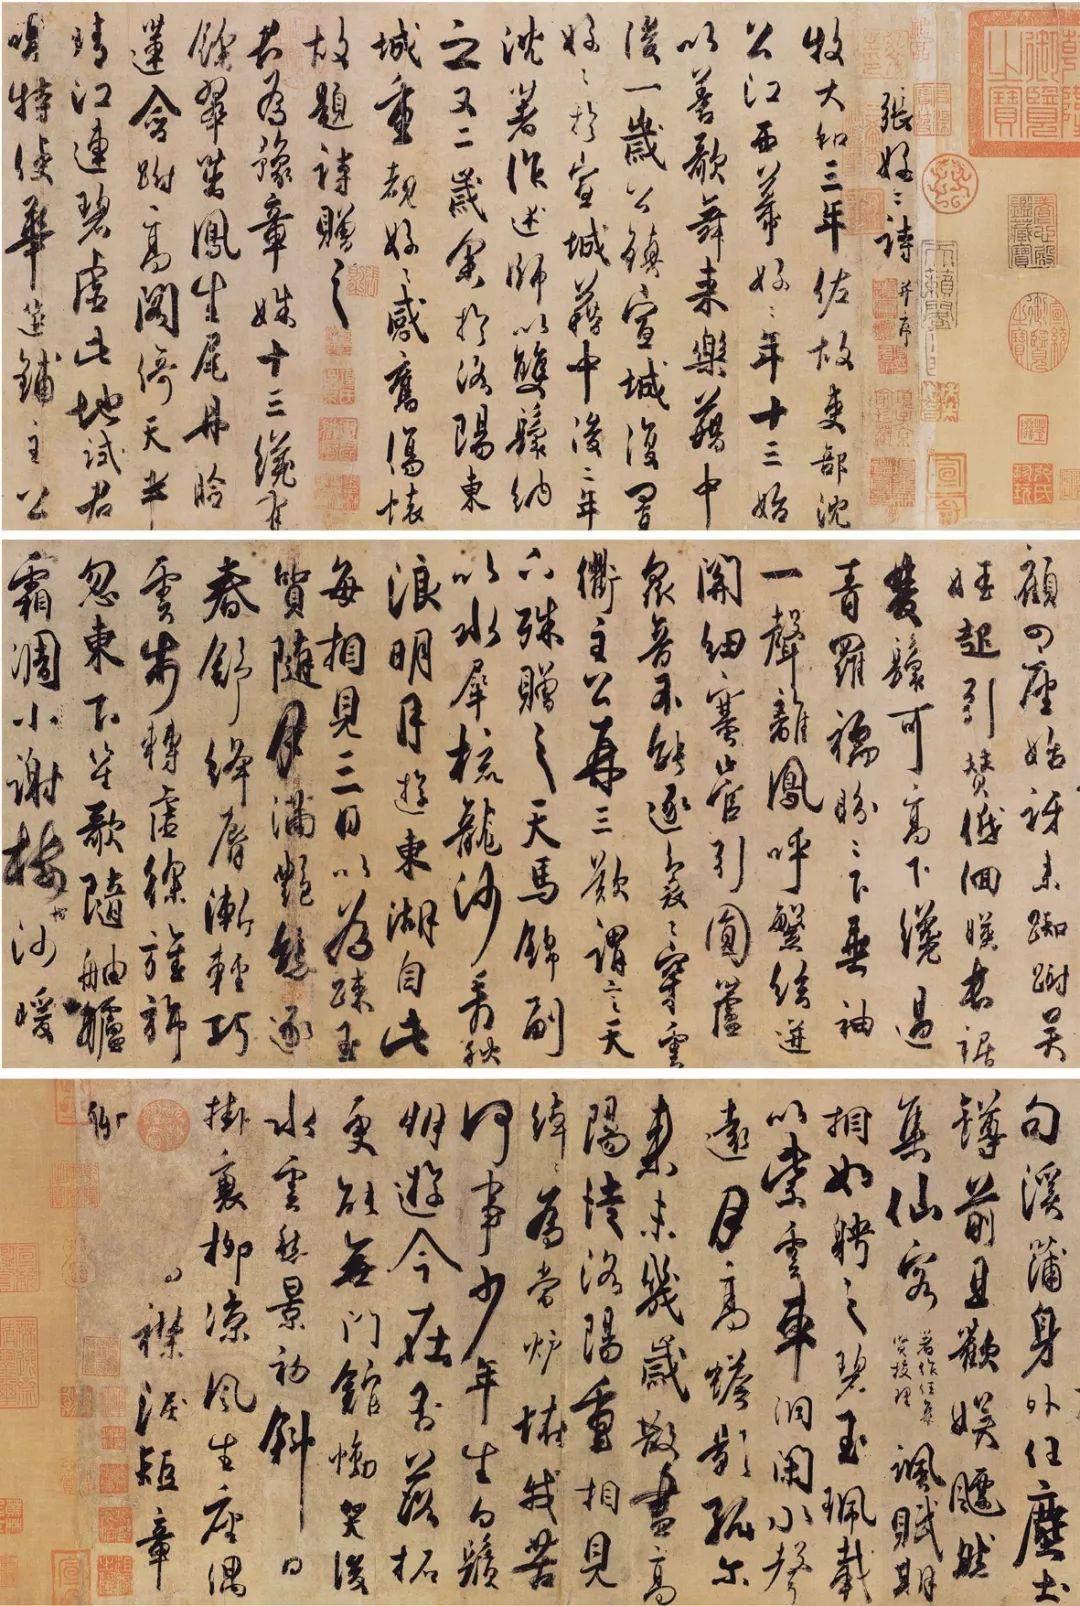 乾隆御覽之寶
養心殿鑑藏寶
宣統御覽之寶
天籟閣
張好〻詩 并序
牧大和三年佐故吏部沈
公江西幕好〻年十三始
以善歌舞來樂籍中
後一歲公鎮宣城復置
好〻於宣城籍中後二年
沈著作述師以雙鬟納
之又二歲余於洛陽東
城重覩好〻感舊傷懷
故題詩贈之
君為豫章姝十三纔有
餘翠茁鳳生尾丹臉
蓮含跗高閣倚天半
晴江連碧虛此地試君
唱特使華筵鋪主公
顧四座始訝來踟躕吳
娃起引贊低佪映長裾
雙鬟可高下纔過
青羅襦盼〻下垂袖
一聲離鳳呼繁絃迸
關紐塞管引圓蘆
衆音不能逐裊〻穿雲
衢主公再三歎謂言天
下殊贈之天馬錦副
以水犀梳龍沙看秋
浪明月遊東湖自此
每相見三日以為疎玉
質隨月滿豔態逐
春舒絳脣漸輕巧
雲步轉虛徐旌旆
忽東下笙歌隨舳艫
霜凋小謝樹沙暖
句溪蒲身外任塵土
罇前且歡娛飄然
集仙客 著作任集賢校理 諷賦期
相如聘之碧玉珮載
以紫雲車洞閉水聲
遠月高蟾影孤爾
來未幾歲散盡高
陽徒洛陽重相見
綽〻為當壚怪我苦
何事少年生白鬚
朋遊今在否落拓
更能無門館慟哭後
水雲愁景初斜日
掛衰柳涼風生座隅
襟淚短章
聊